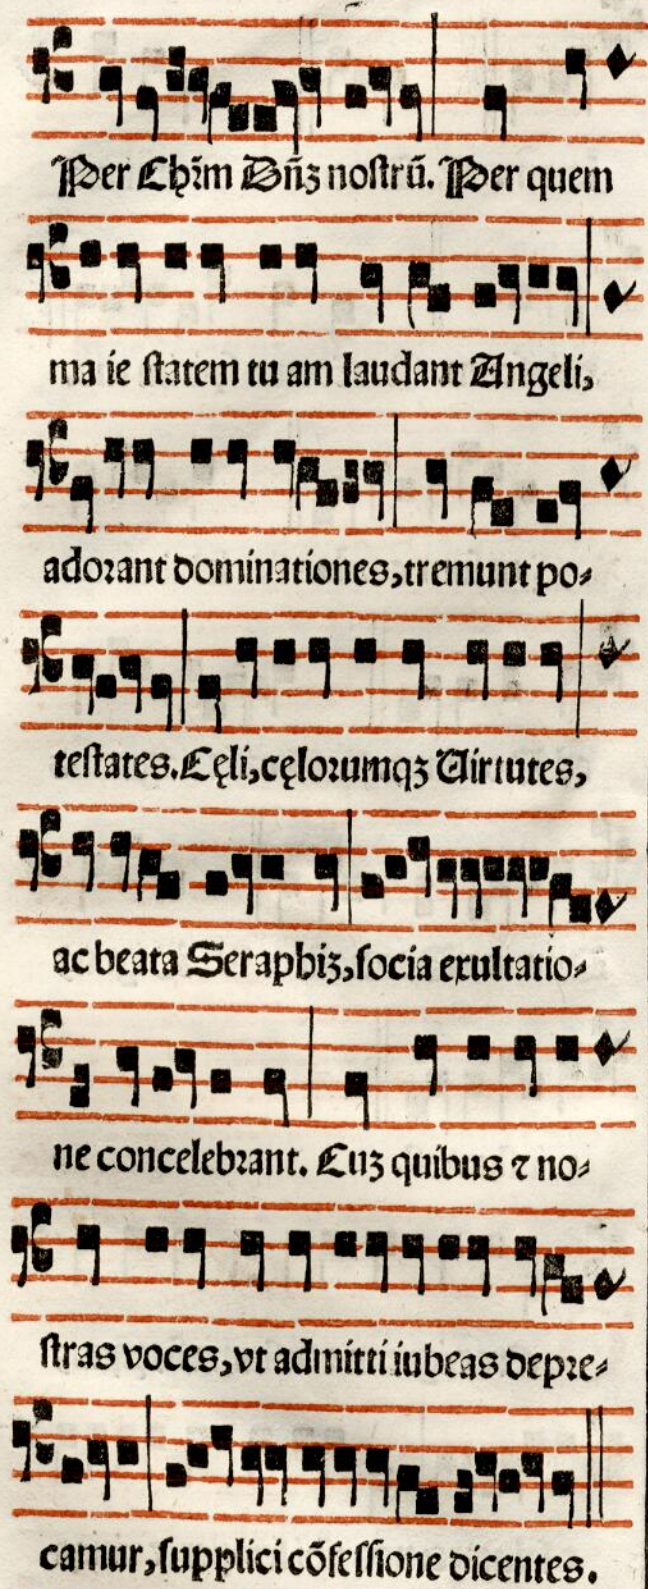 Per Chꝛ̄m Dn̄ꝫ nostrū. Per quem
ma ie statem tu am laudant Angeli,
adoꝛant dominationes, tremunt po⸗
testates. Cęli, cęloꝛumqꝫ Uirtutes,
ac beata Seraphiꝫ, socia exultatio⸗
ne concelebꝛant. Cuꝫ quibus ⁊ no⸗
stras voces, vt admitti iubeas depꝛe⸗
camur, supplici cōfessione dicentes.